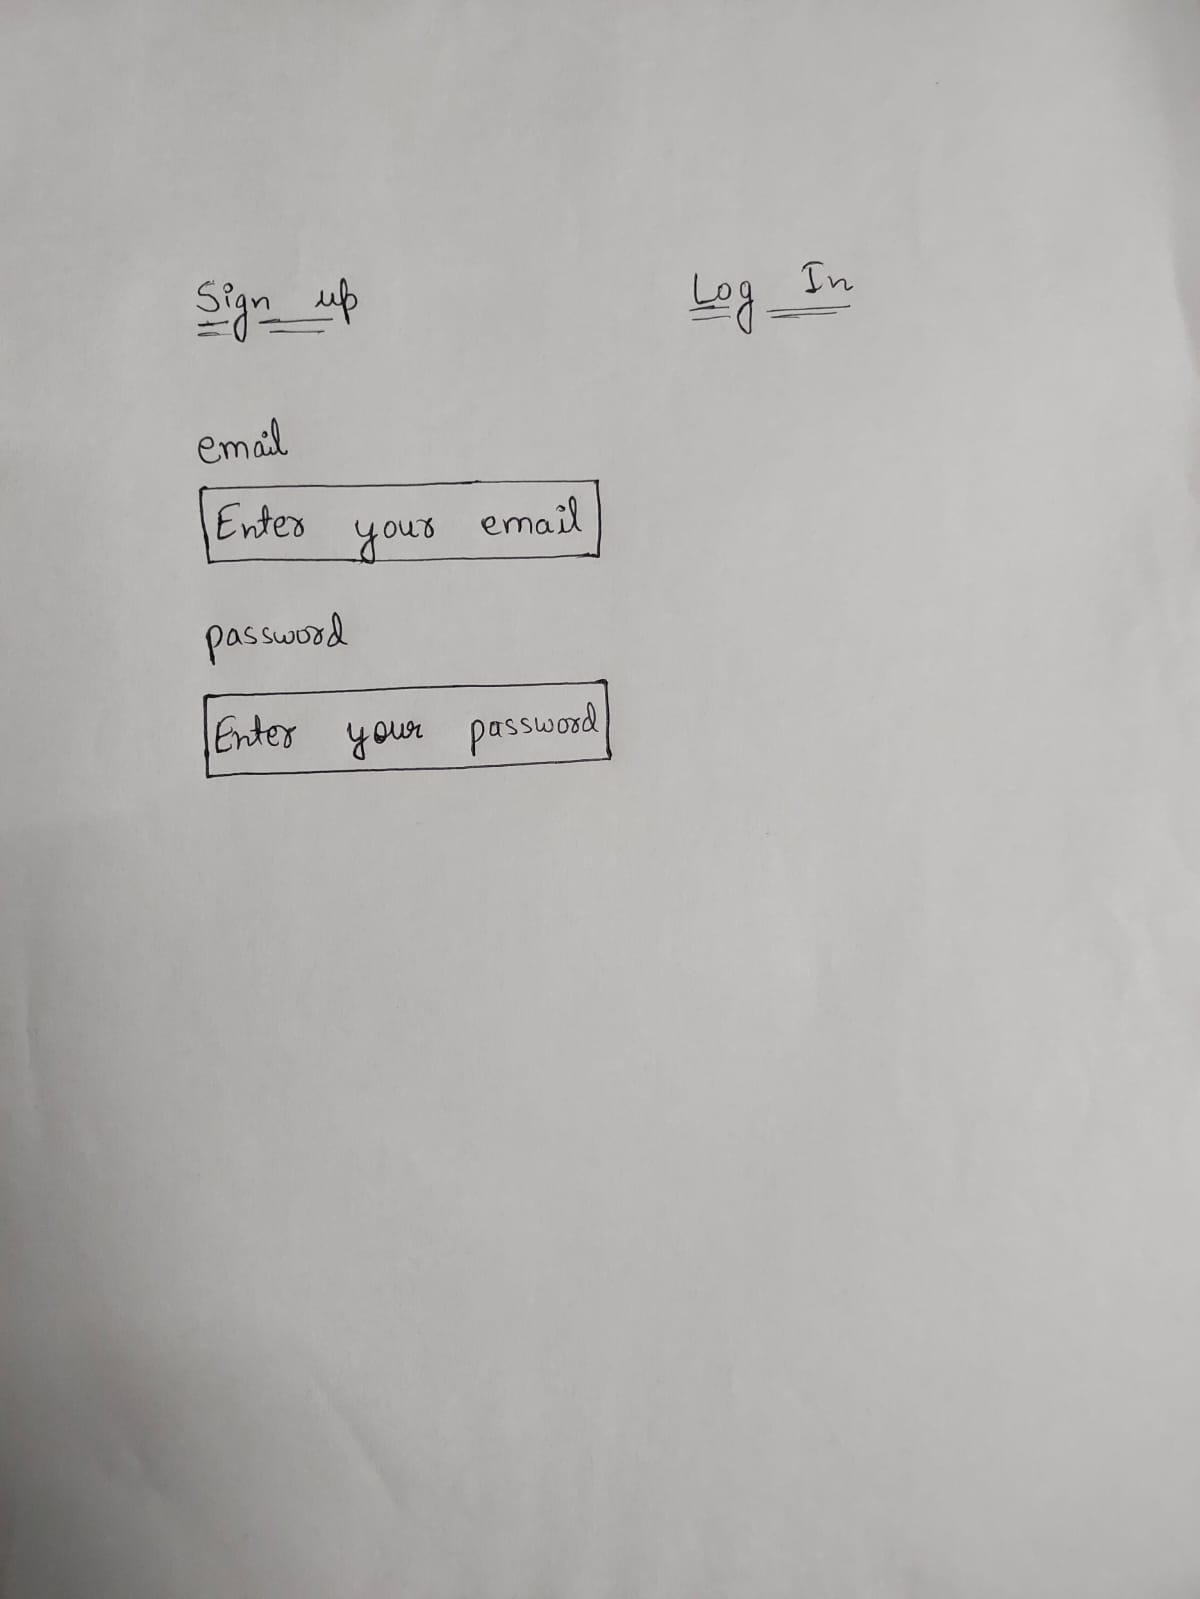 Sign up Log In
email
Enter your email
password
Enter your password